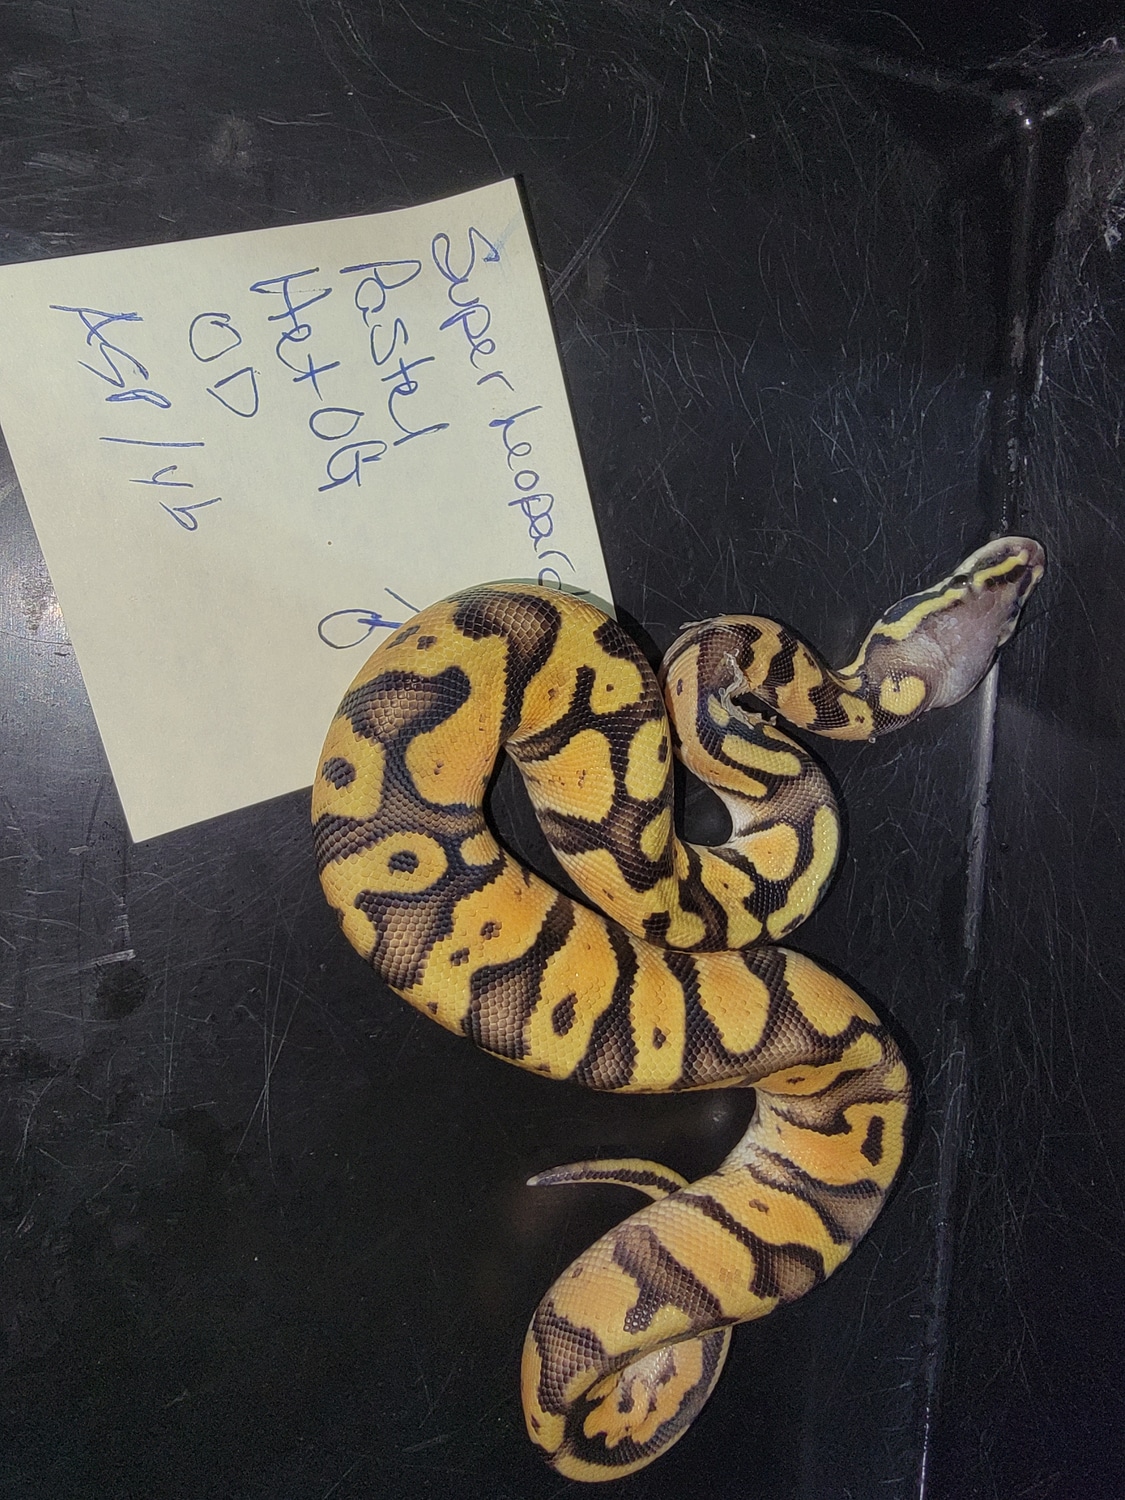 Super leopard
Pastel
Het DG
OD
ASP/yb